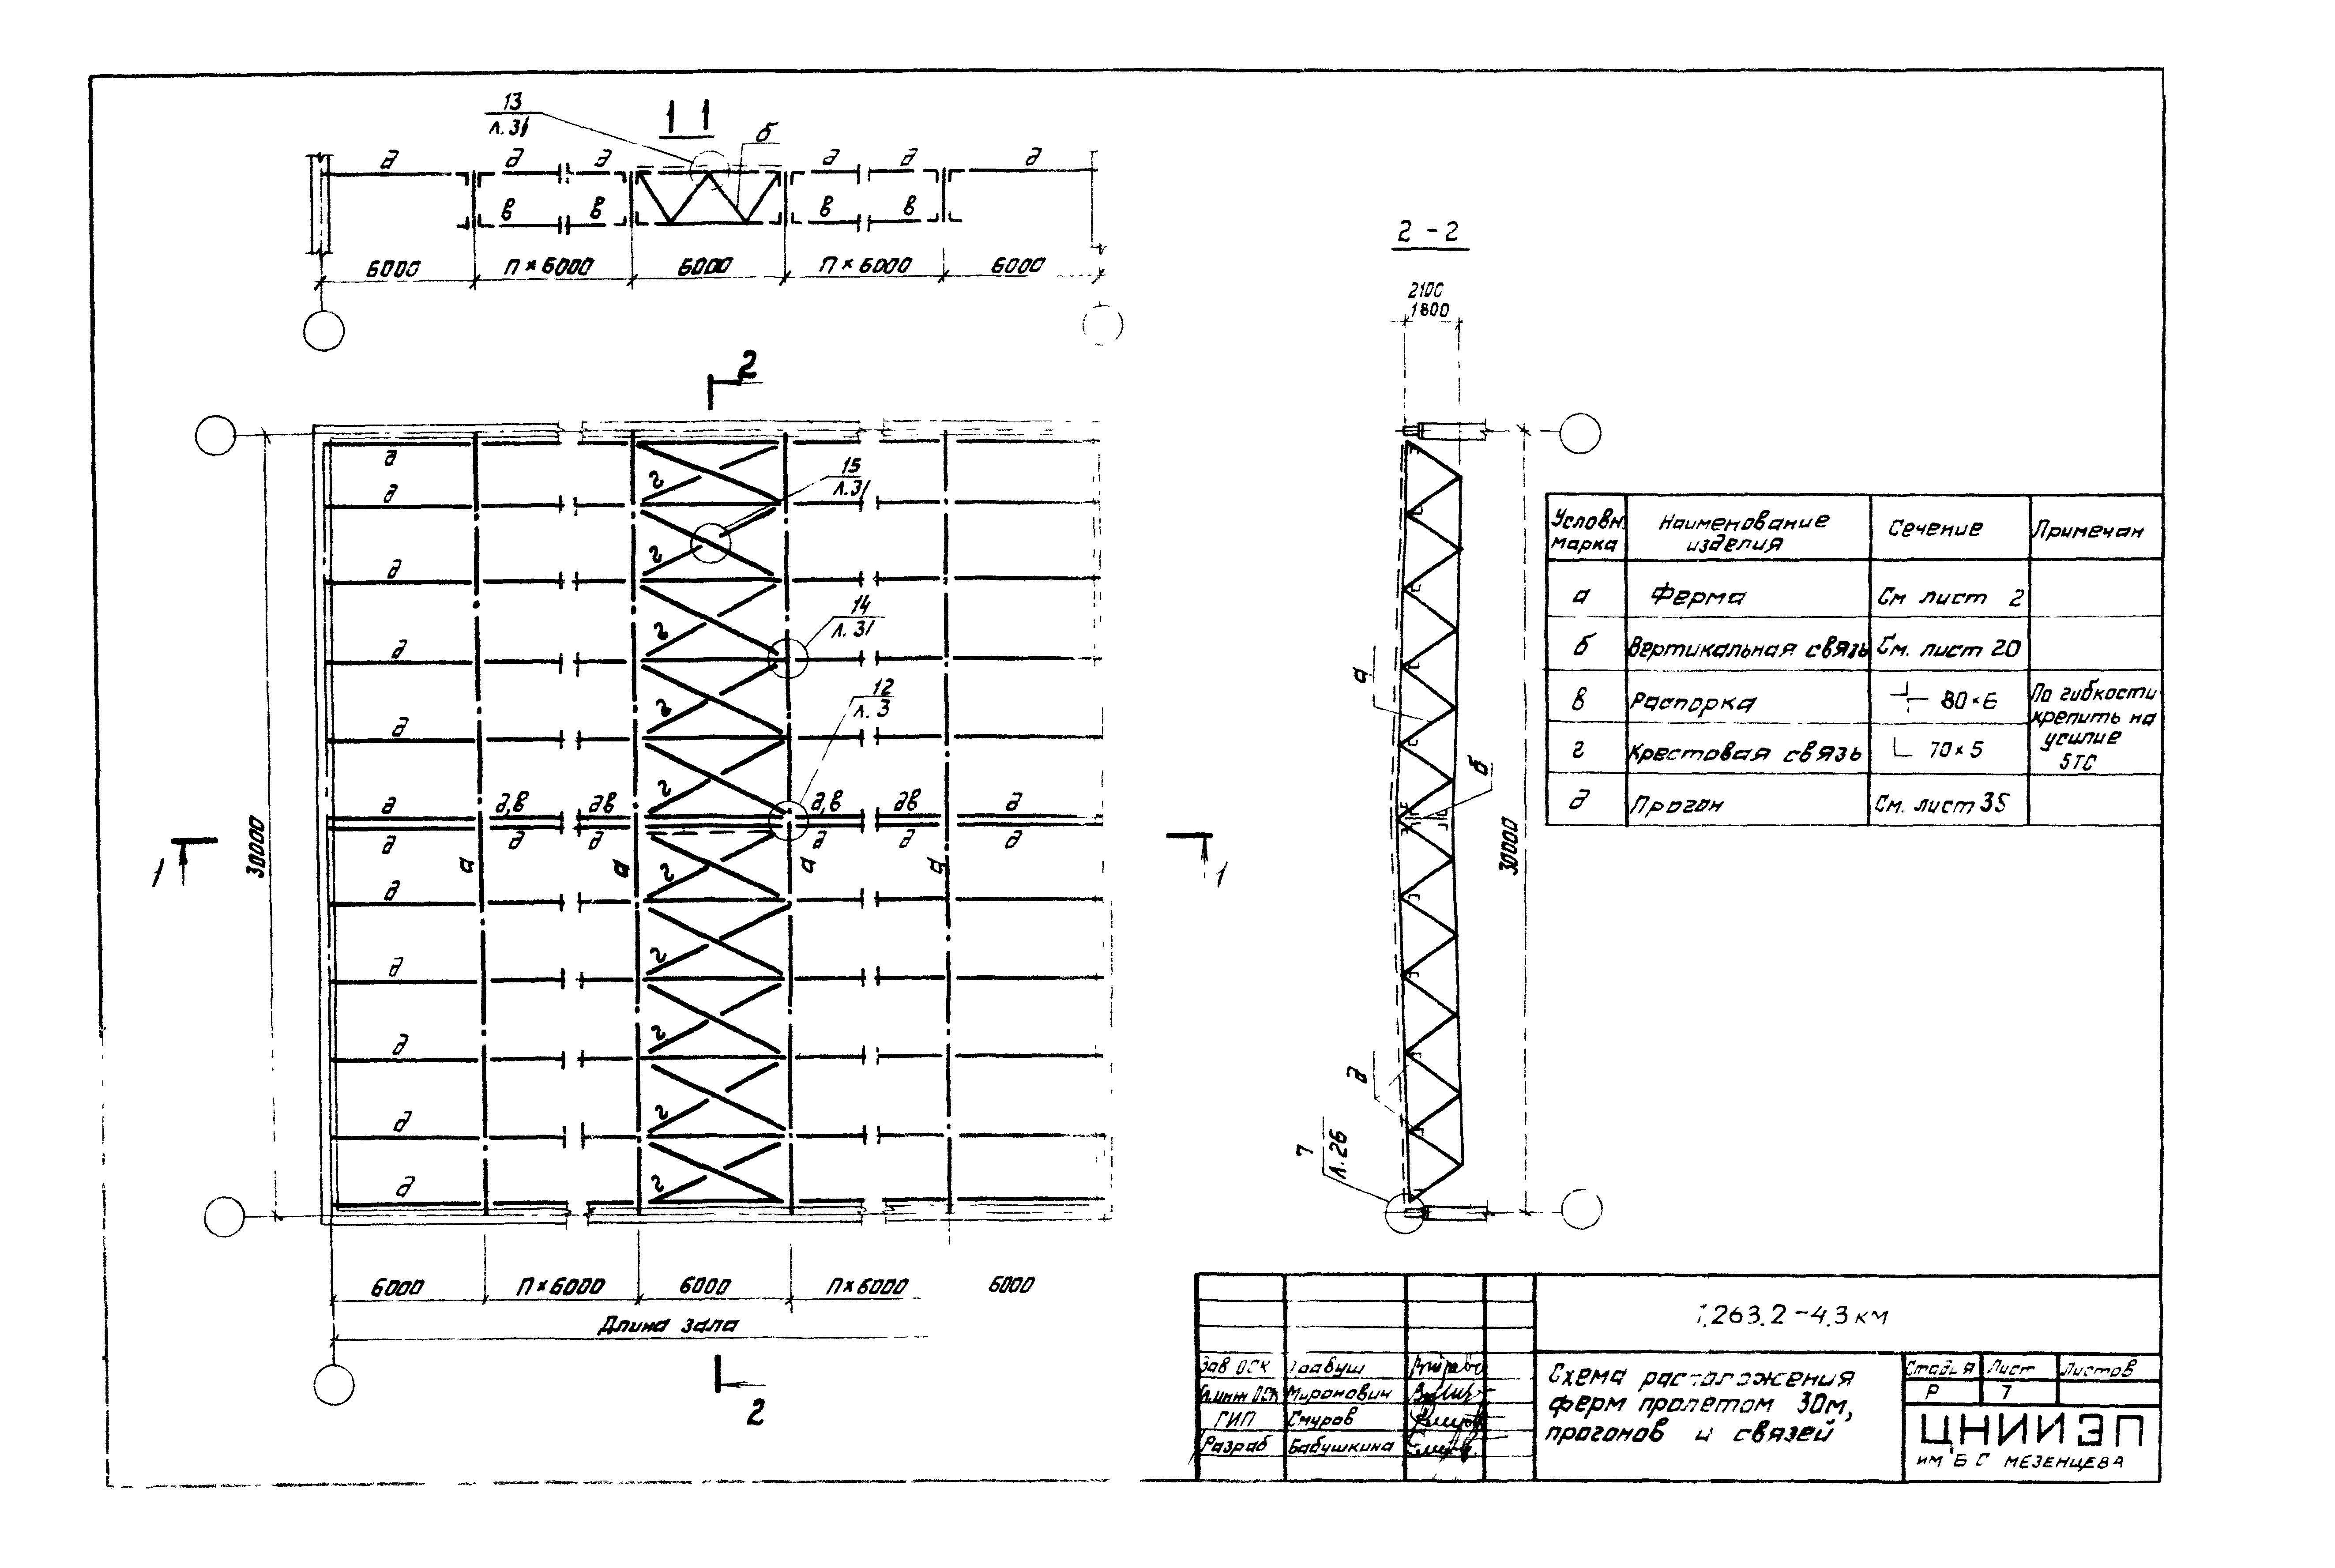 13
л. 31
1 1
б
д д д д д д
в в в в
6000 п×6000 6000 п×6000 6000
2 - 2
2100
1800
2
15
л.31
14
л. 31
12
л. 3
д
г
д
г
д
г
д
г
д
г
д д,в дв д,в дв д
д д д д д д
а а а а
г
д
г
д
г
д
г
д
г
д
30000
1
1
6000 п×6000 6000 п×6000 6000
Длина зала
2
а
б
д
7
л.26
30000
Условн. марка
Наименование изделия
Сечение
Примечан
а Ферма См лист 2
б Вертикальная связь См. лист 20
в Распорка 80×6
г Крестовая связь 70×5
По гибкости
крепить на
усилие
5тс
д Прогон См. лист 35
1.263.2-4.3 км
Зав ОСК
Гл.инж ОСК Миронович
ГИП Смуров
Разраб Бабушкина
Схема расположения
ферм пролетом 30м,
прогонов и связей
Стадия Лист Листов
Р 7
ЦНИИЭП
им Б С МЕЗЕНЦЕВА